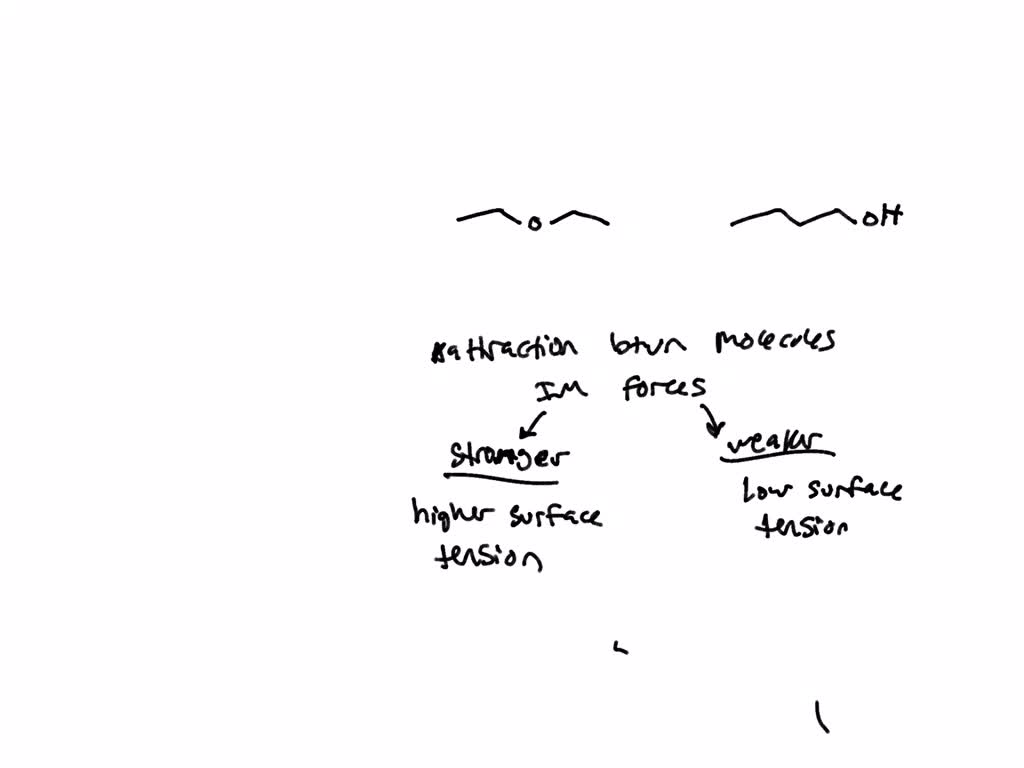 o oH
attraction btwn molecules
IM forces
stronger weaker
higher surface low surface
tension tension